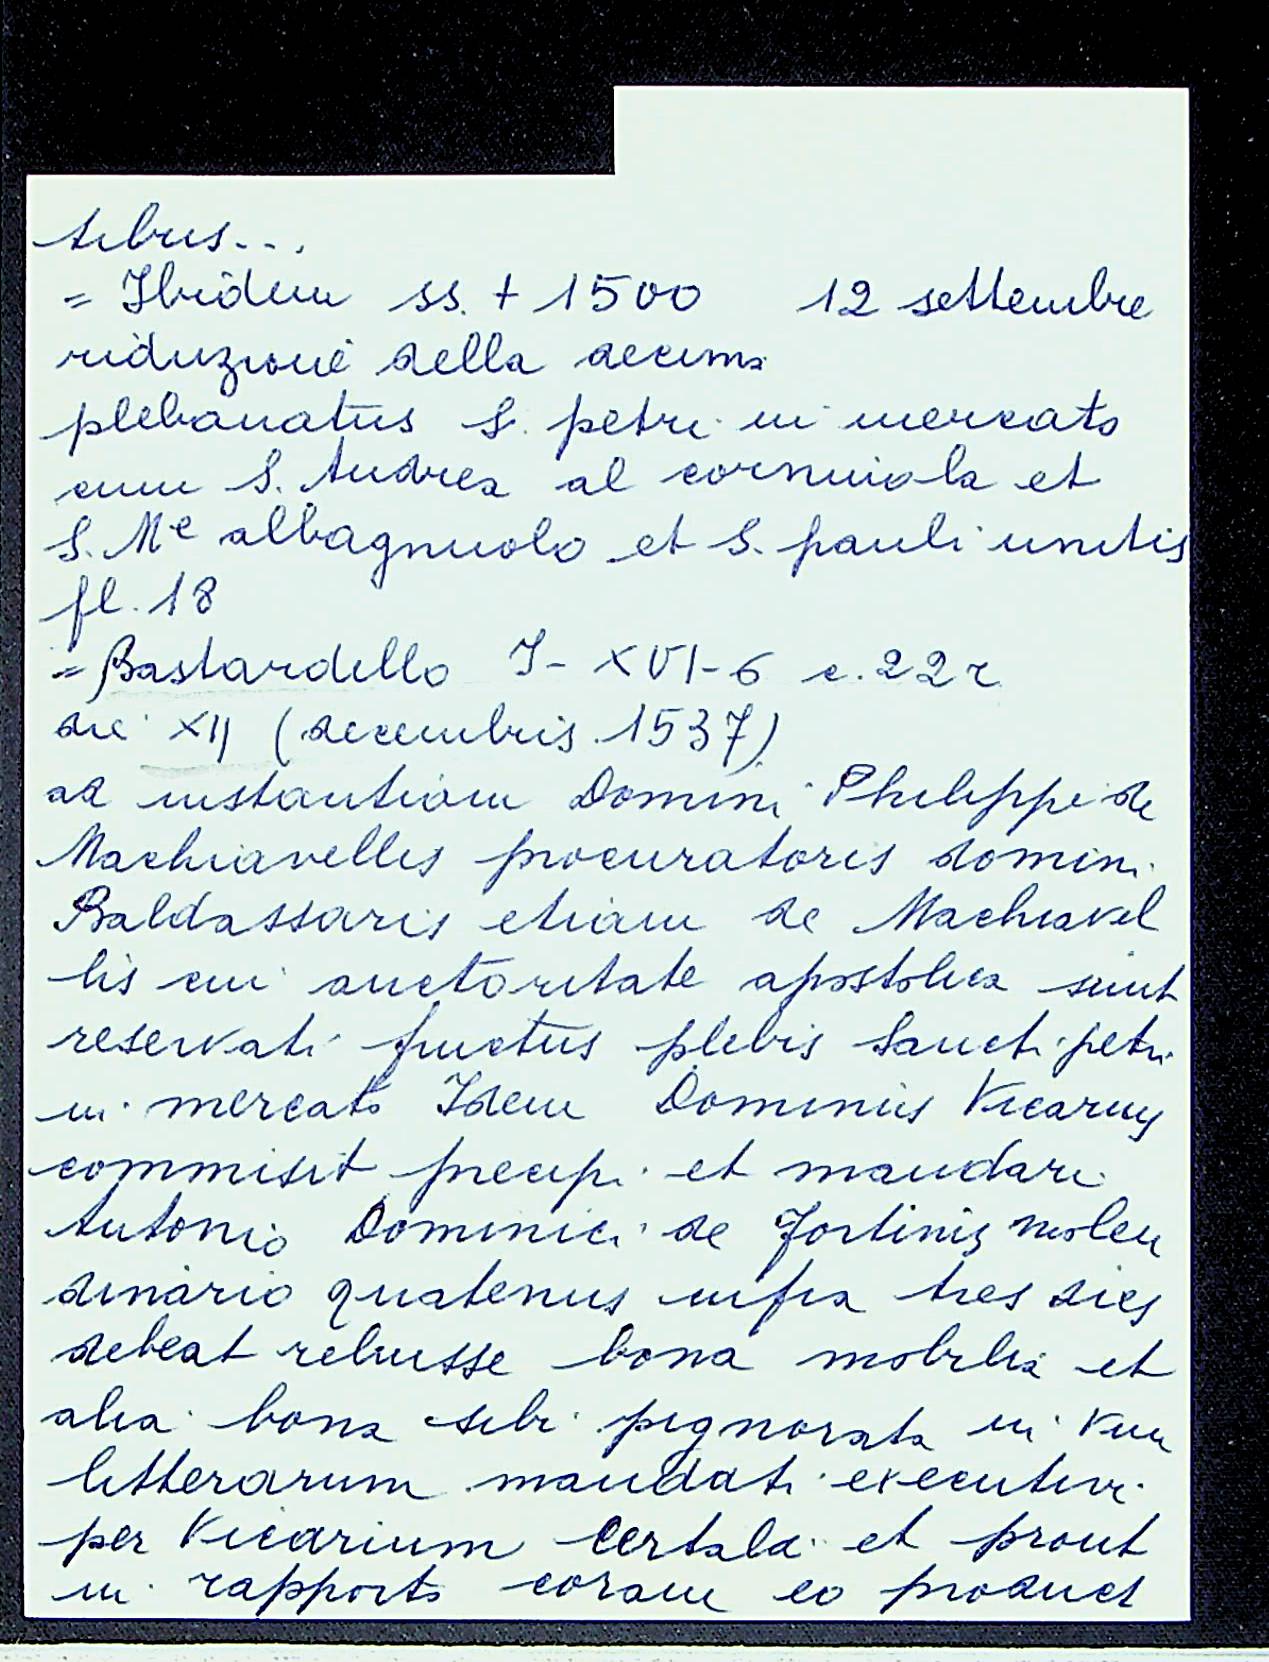 tibus...
= Ibidem ss. + 1500 12 settembre
riduzione della decima
plebanatus S. petri in mercato
cum S. Andrea al corniola et
S. Me albagnuolo et S. pauli unitis
fl. 18
= Bastardello I-XVI-6 c. 22 r
die XIJ (decembris 1537)
ad instantiam Domini Philippi de
Machiavellis procuratoris domini
Baldassaris etiam de Machiavel
lis cui auctoritate apostolica sunt
reservati fructus plebis Sancti petri
in mercato Idem Dominus Vicarius
commisit precipi et mandari
Antonio Dominici de Fortinis molen
dinario quatenus infra tres dies
debeat rehusse bona mobilia et
alia bona sibi pignorata in vim
litterarum mandati executivi
per Vicarium Certaldi et prout
in rapporto coram eo product